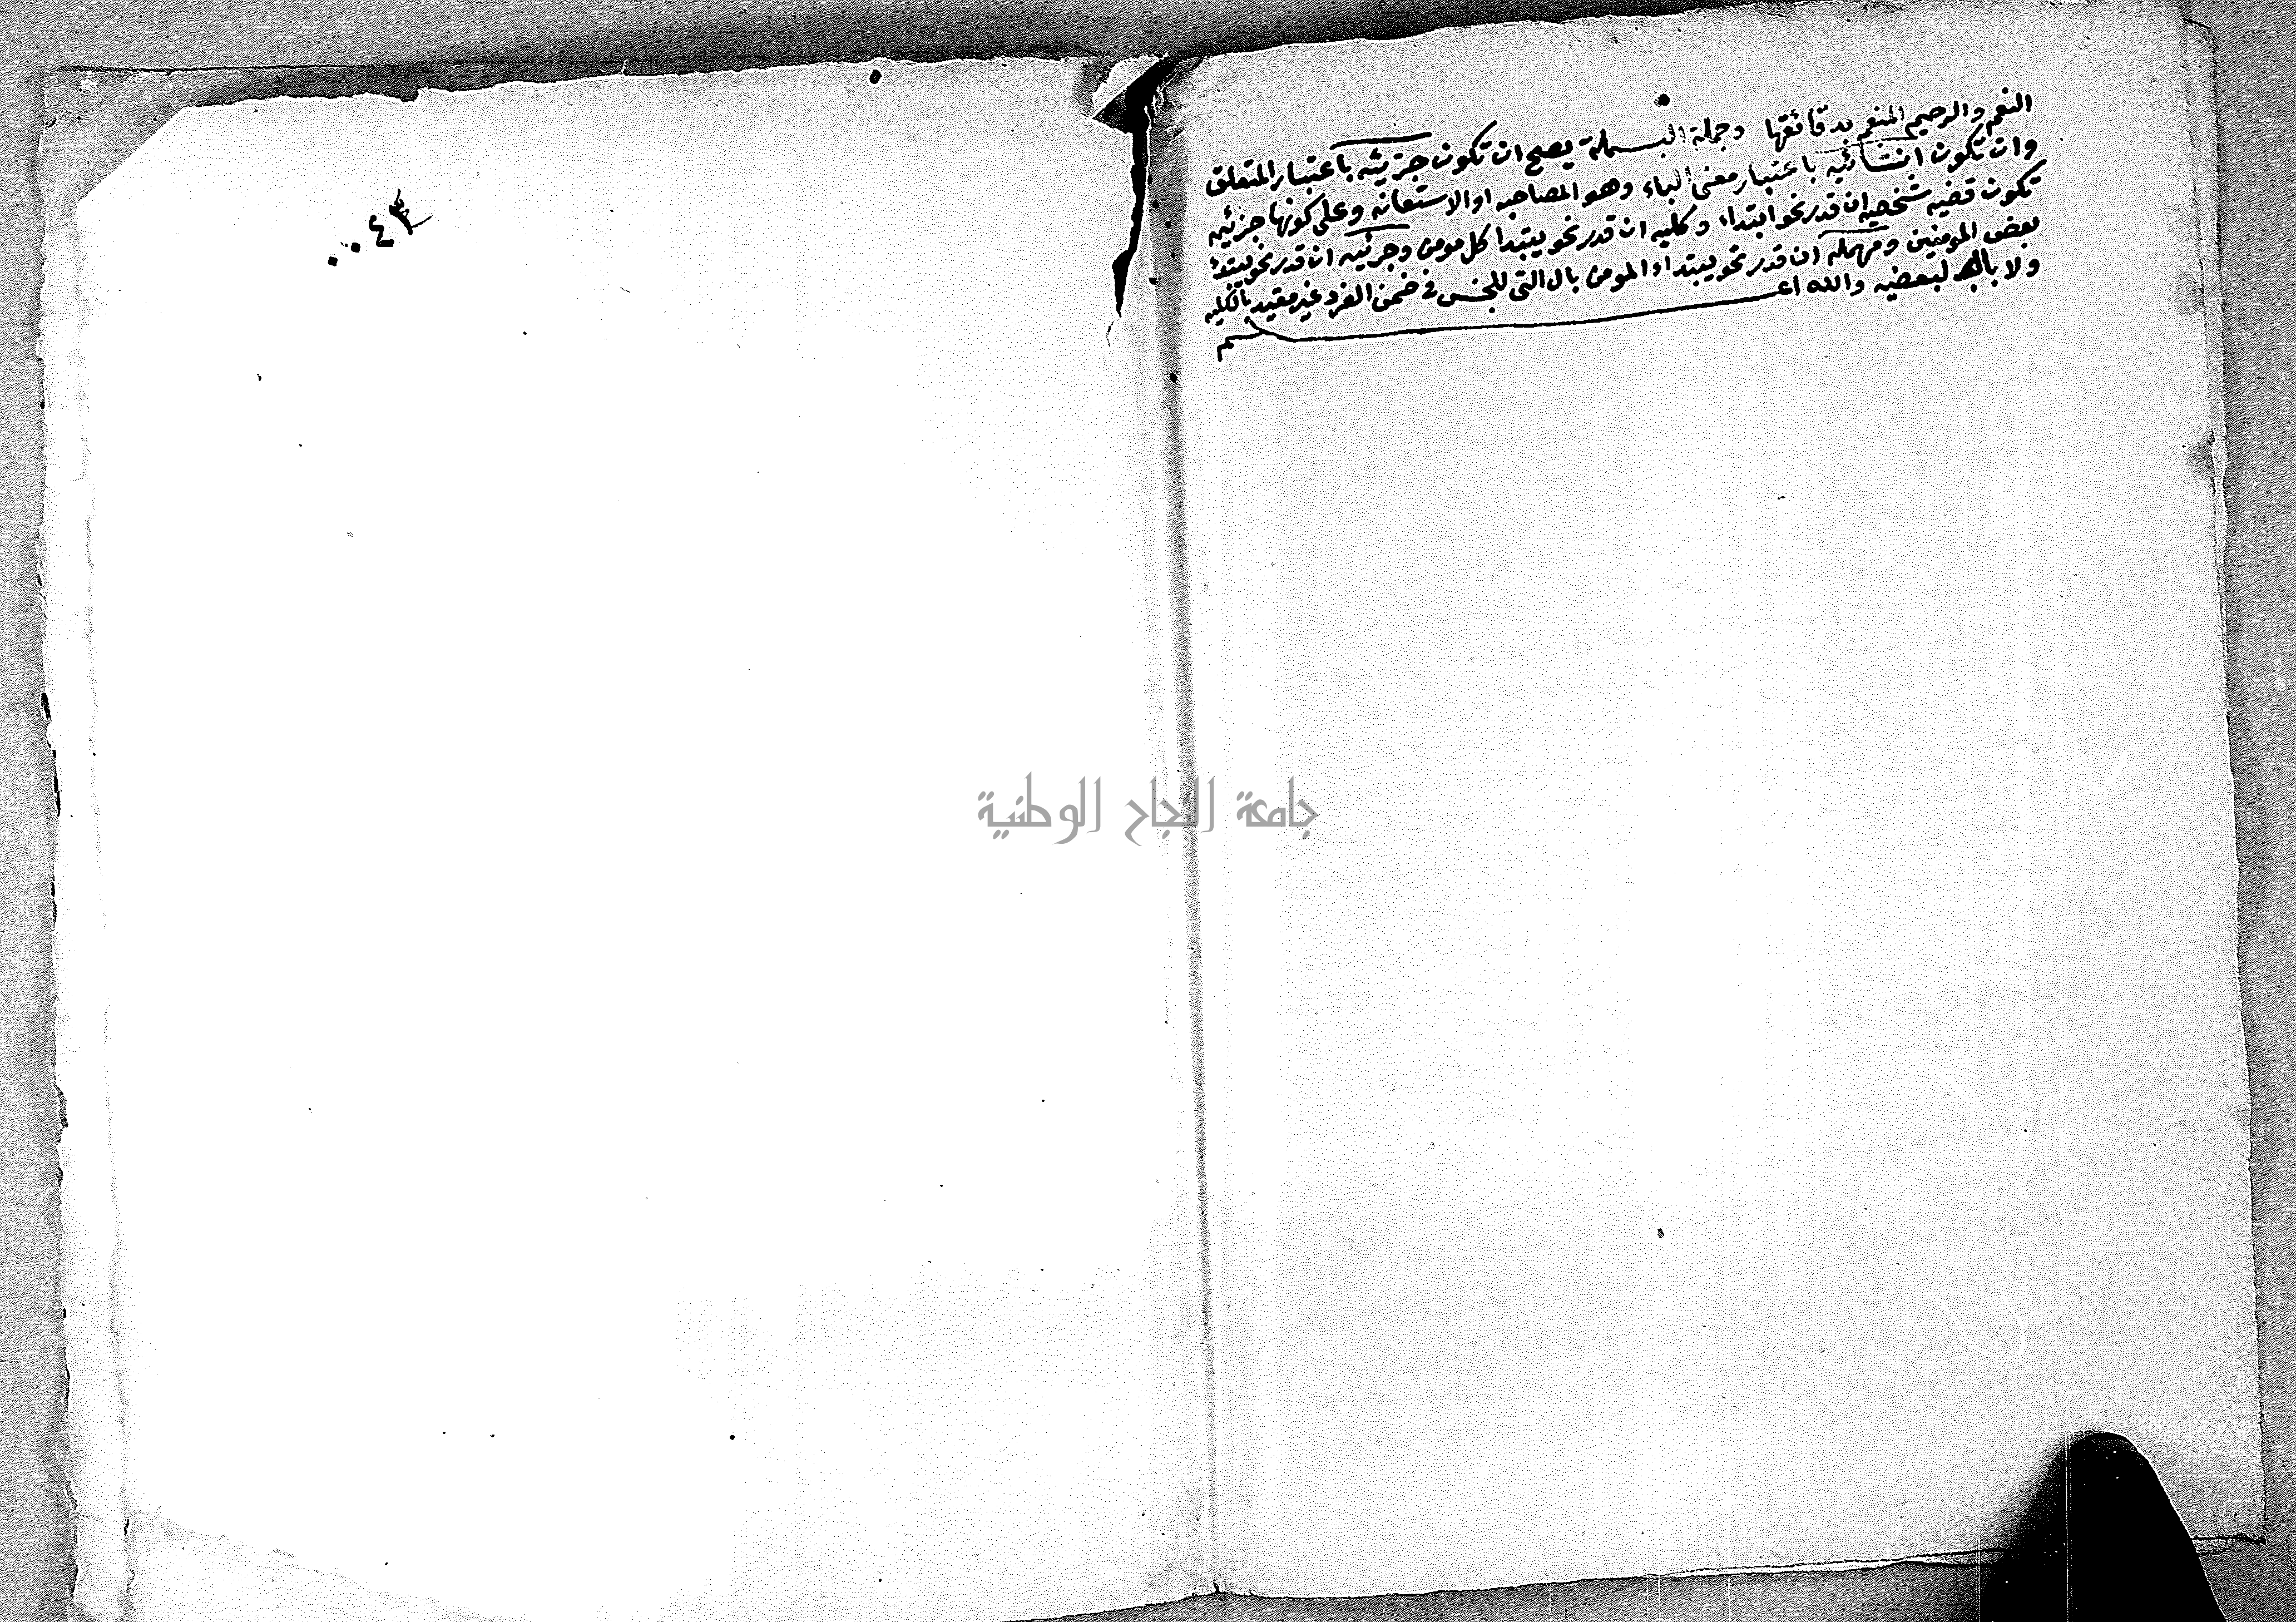 النعم والرحيم المنعم بدقائقها وجملة البسملة يصح ان تكون جزئيه باعتبار المتعلق
وان تكون انشائيه باعتبار معنى الباء وهو المصاحبه او الاستعانه وعلى كونها جزئيه
تكون قضيه شخصيه ان قدر نحو ابتداء وكليه ان قدر نحو يبتدا كل مومن وجزئيه ان قدر نحو يبتدئ
بعض المومنين ومهمله ان قدر نحو يبتداء المومن بال التى للجنس فى ضمن الفرد غير مقيد بالكليه
ولا لبعضيه والله اعلم
تم
٠٠٤٣
جامعة النجاح الوطنية